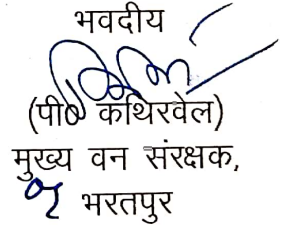 भवदीय
(पी० कथिरवेल)
मुख्य वन संरक्षक,
भरतपुर